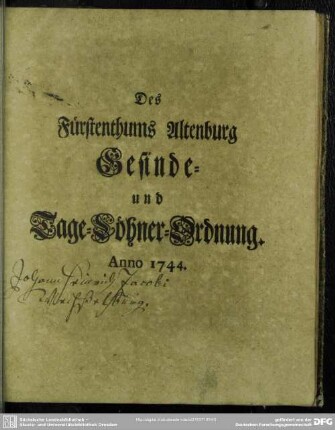 Des
Fürstenthums Altenburg
Gesinde-
und
Tage-Löhner-Ordnung.
Anno 1744.
Johann Friedrich Jacobi
Sächsische Landesbibliothek -
Staats- und Universitätsbibliothek Dresden
gefördert von der
Deutschen Forschungsgemeinschaft
DFG